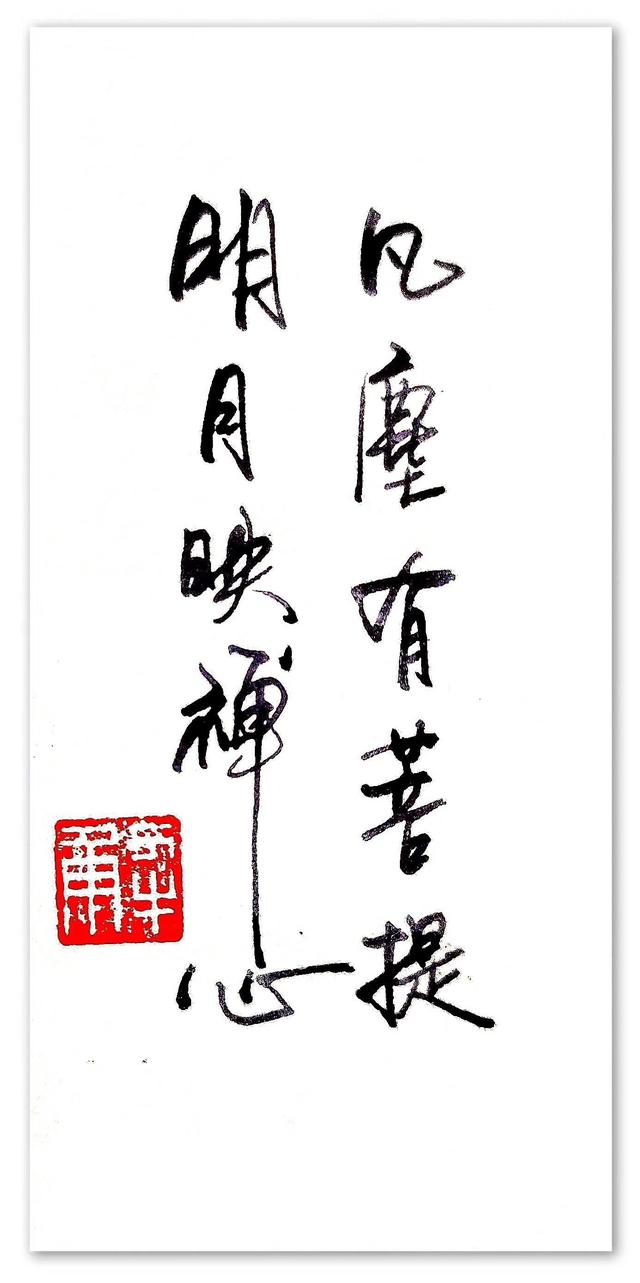 凡塵有菩提
明月映禪心